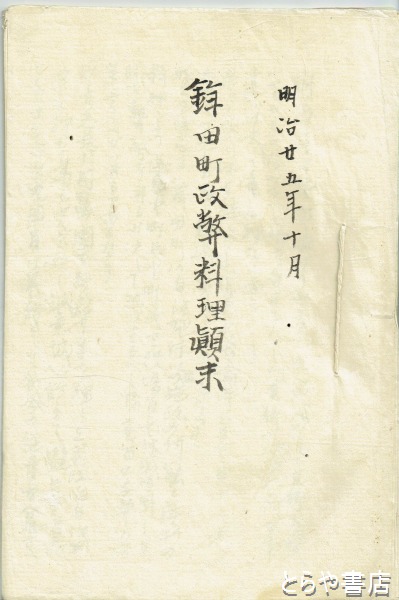 明治廿五年十月
鉾田町政弊料理顛末
とらや書店